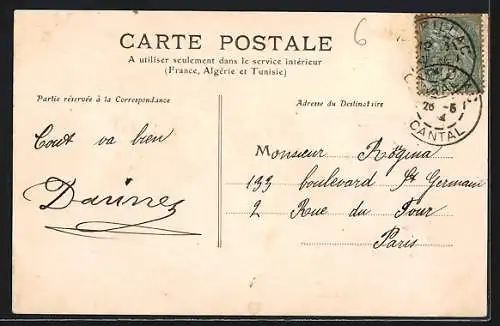 6
CARTE POSTALE
A utiliser seulement dans le service intérieur
(France, Algérie et Tunisie)
Partie réservée à la Correspondance
Adresse du Destinataire
26 -5
CANTAL
Tout va bien
Monsieur Rogina
133 boulevard St Germain
2 Rue du Four
Paris